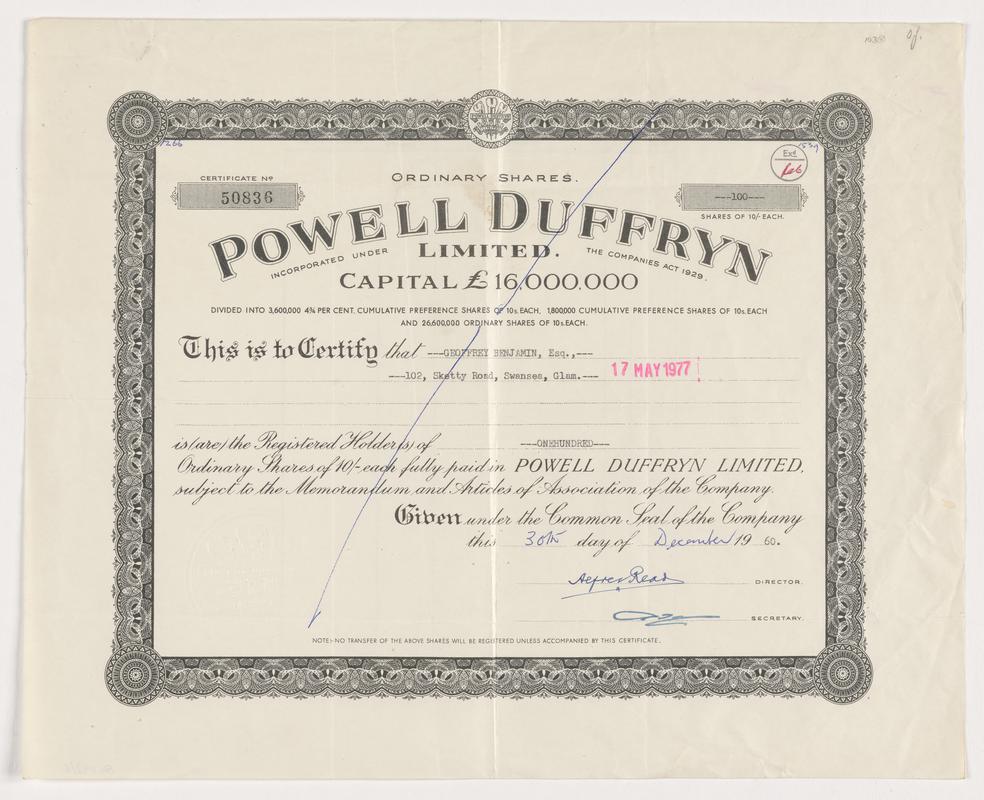 of.
1266
Exd
CERTIFICATE No
50836
ORDINARY SHARES.
---100---
SHARES OF 10/- EACH.
POWELL DUFFRYN
LIMITED.
INCORPORATED UNDER THE COMPANIES ACT 1929.
CAPITAL £16,000,000
DIVIDED INTO 3,600,000 4¾ PER CENT. CUMULATIVE PREFERENCE SHARES OF 10s. EACH, 1,800,000 CUMULATIVE PREFERENCE SHARES OF 10s. EACH
AND 26,600,000 ORDINARY SHARES OF 10s. EACH.
This is to Certify that ---GEOFFREY BENJAMIN, Esq.,---
---102, Sketty Road, Swansea, Glam.--- 17 MAY 1977
is (are) the Registered Holder(s) of ---ONEHUNDRED---
Ordinary Shares of 10/- each fully paid in POWELL DUFFRYN LIMITED,
subject to the Memorandum and Articles of Association of the Company.
Given under the Common Seal of the Company
this 30th day of December 19 60.
Alfred Read DIRECTOR.
SECRETARY.
NOTE:- NO TRANSFER OF THE ABOVE SHARES WILL BE REGISTERED UNLESS ACCOMPANIED BY THIS CERTIFICATE.